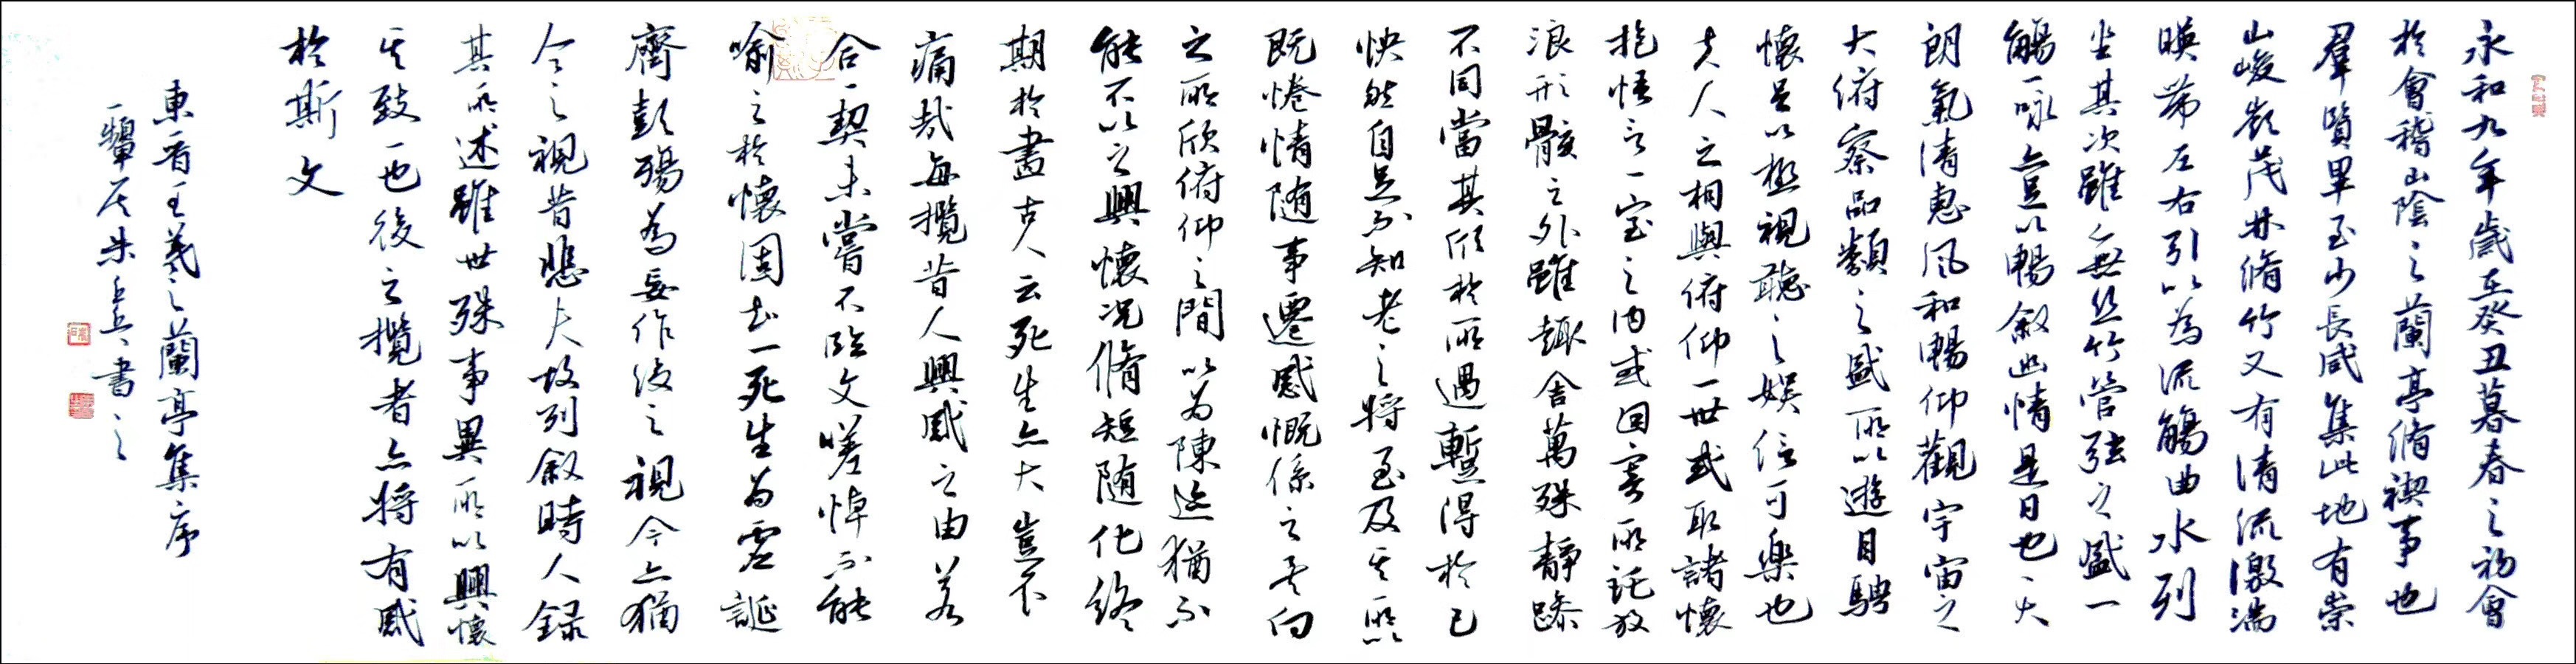 永和九年歲在癸丑暮春之初會
於會稽山陰之蘭亭脩禊事也
羣賢畢至少長咸集此地有崇
山峻嶺茂林脩竹又有清流激湍
暎帶左右引以為流觴曲水列
坐其次雖無絲竹管弦之盛一
觴一詠亦足以暢敘幽情是日也天
朗氣清惠風和暢仰觀宇宙之
大俯察品類之盛所以遊目騁
懷足以極視聽之娛信可樂也
夫人之相與俯仰一世或取諸懷
抱悟言一室之內或因寄所託放
浪形骸之外雖趣舍萬殊靜躁
不同當其欣於所遇暫得於己
快然自足不知老之將至及其所
既惓情隨事遷感慨係之矣向
之所欣俯仰之間以為陳迹猶不
能不以之興懷況脩短隨化終
期於盡古人云死生亦大豈不
痛哉每攬昔人興感之由若
合一契未嘗不臨文嗟悼不能
喻之於懷固知一死生為虛誕
齊彭殤為妄作後之視今亦猶
今之視昔悲夫故列敘時人錄
其所述雖世殊事異所以興懷
其致一也後之攬者亦將有感
於斯文
東晉王羲之蘭亭集序
朱兵書之